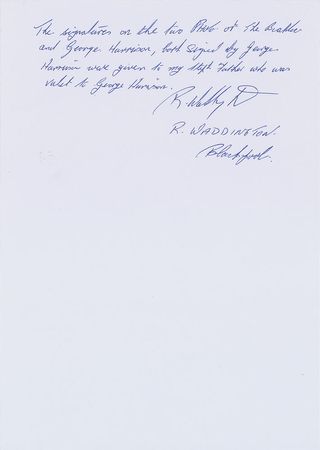 The signatures on the two Photo of The Beatles
and George Harrison, both signed by George
Harrison were given to my Step Father who was
valet to George Harrison.
R. WADDINGTON.
Blackpool.